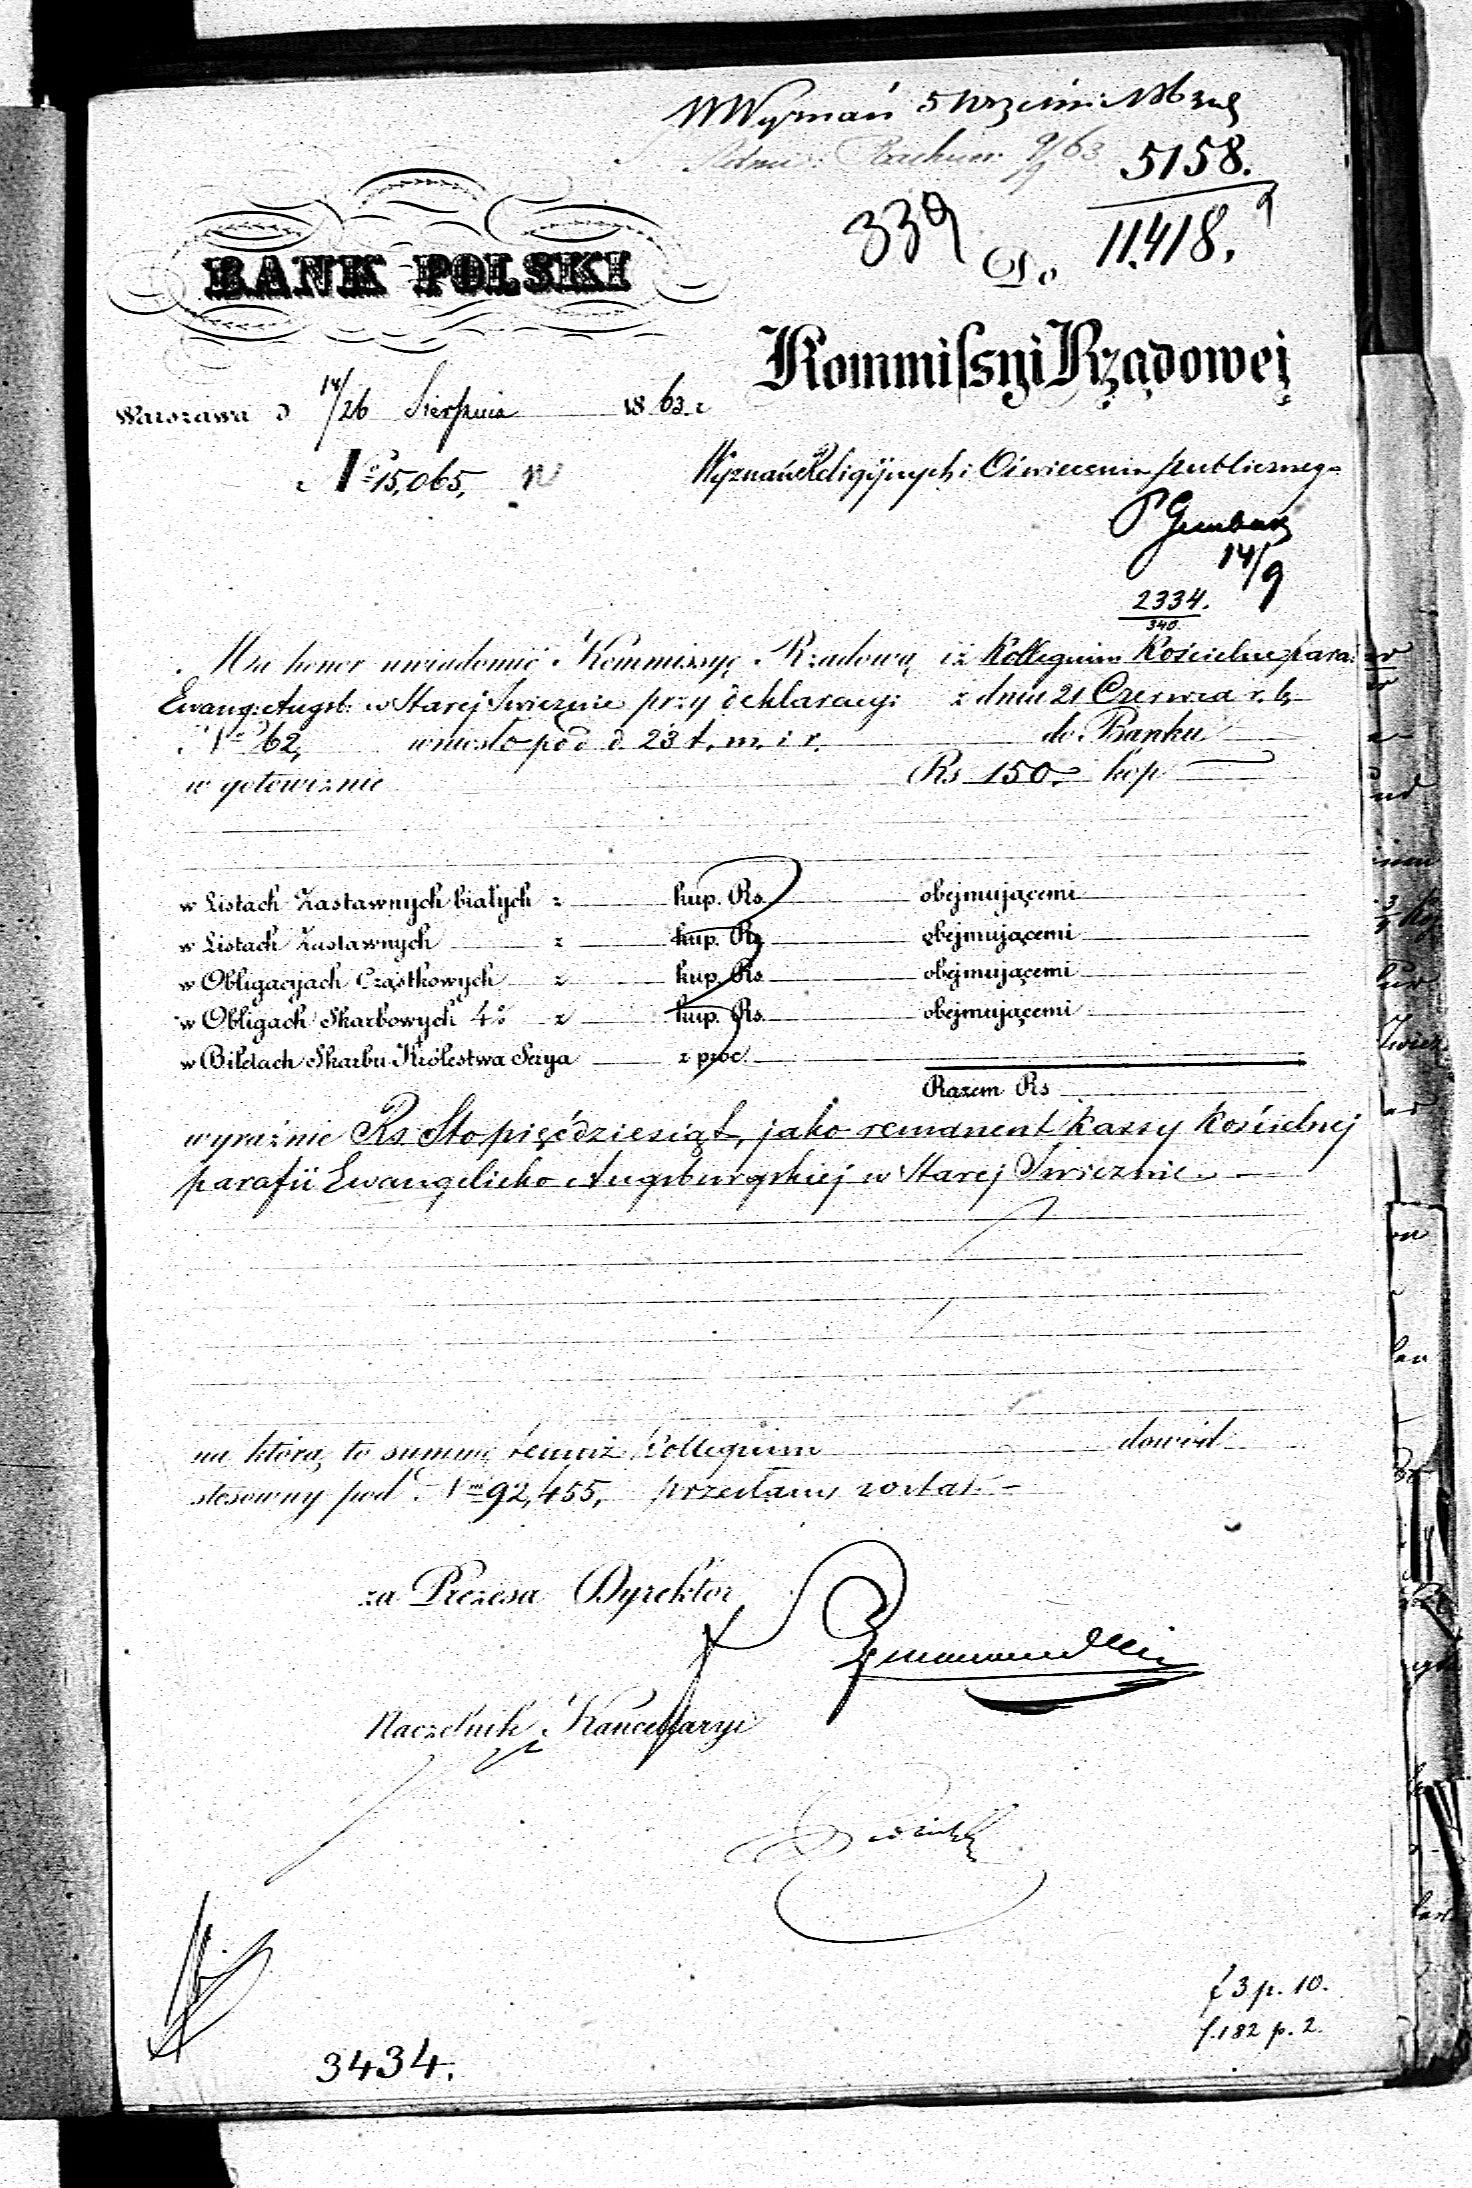 WWyznań 5 Wrześni 1863
Rachun. 9/9 63 5158.
339 11.418.
BANK POLSKI
Do
Kommissyi Rządowej
Warszawa d 14/26 Sierpnia 1863 r
№ 15,065.
Wyznań Religijnych i Oświecenia publicznego
14/9
2334.
340.
Ma honor uwiadomić Kommissyę Rządową iż Kollegium Kościelne para:
Ewang: Augsb: w Starej Iwicznie przy deklaracyi z dnia 21 Czerwca r. b.
№ 62, wniosło pod d 23 t. m. i r. do Banku
w gotowiznie Rs 150. kop —
w Listach Zastawnych białych z kup. Rs. obejmującemi
w Listach Zastawnych z kup. Rs obejmującemi
w Obligacyjach Cząstkowych z kup. Rs obejmującemi
w Obligach Skarbowych 4% z kup. Rs. obejmującemi
w Biletach Skarbu Królestwa Serya z proc.
Razem Rs
wyraźnie Rs Sto pięćdziesiąt, jako remanent Kassy Kościelnej
parafii Ewangelicko Augsburgskiej w Starej Iwicznie.
na którą to summę temuż Kollegium dowód
stosowny pod № 92,455, przesłany został.
za Prezesa Dyrektor
Naczelnik Kancellaryi
f 3 p. 10.
f. 182 p. 2.
3434.